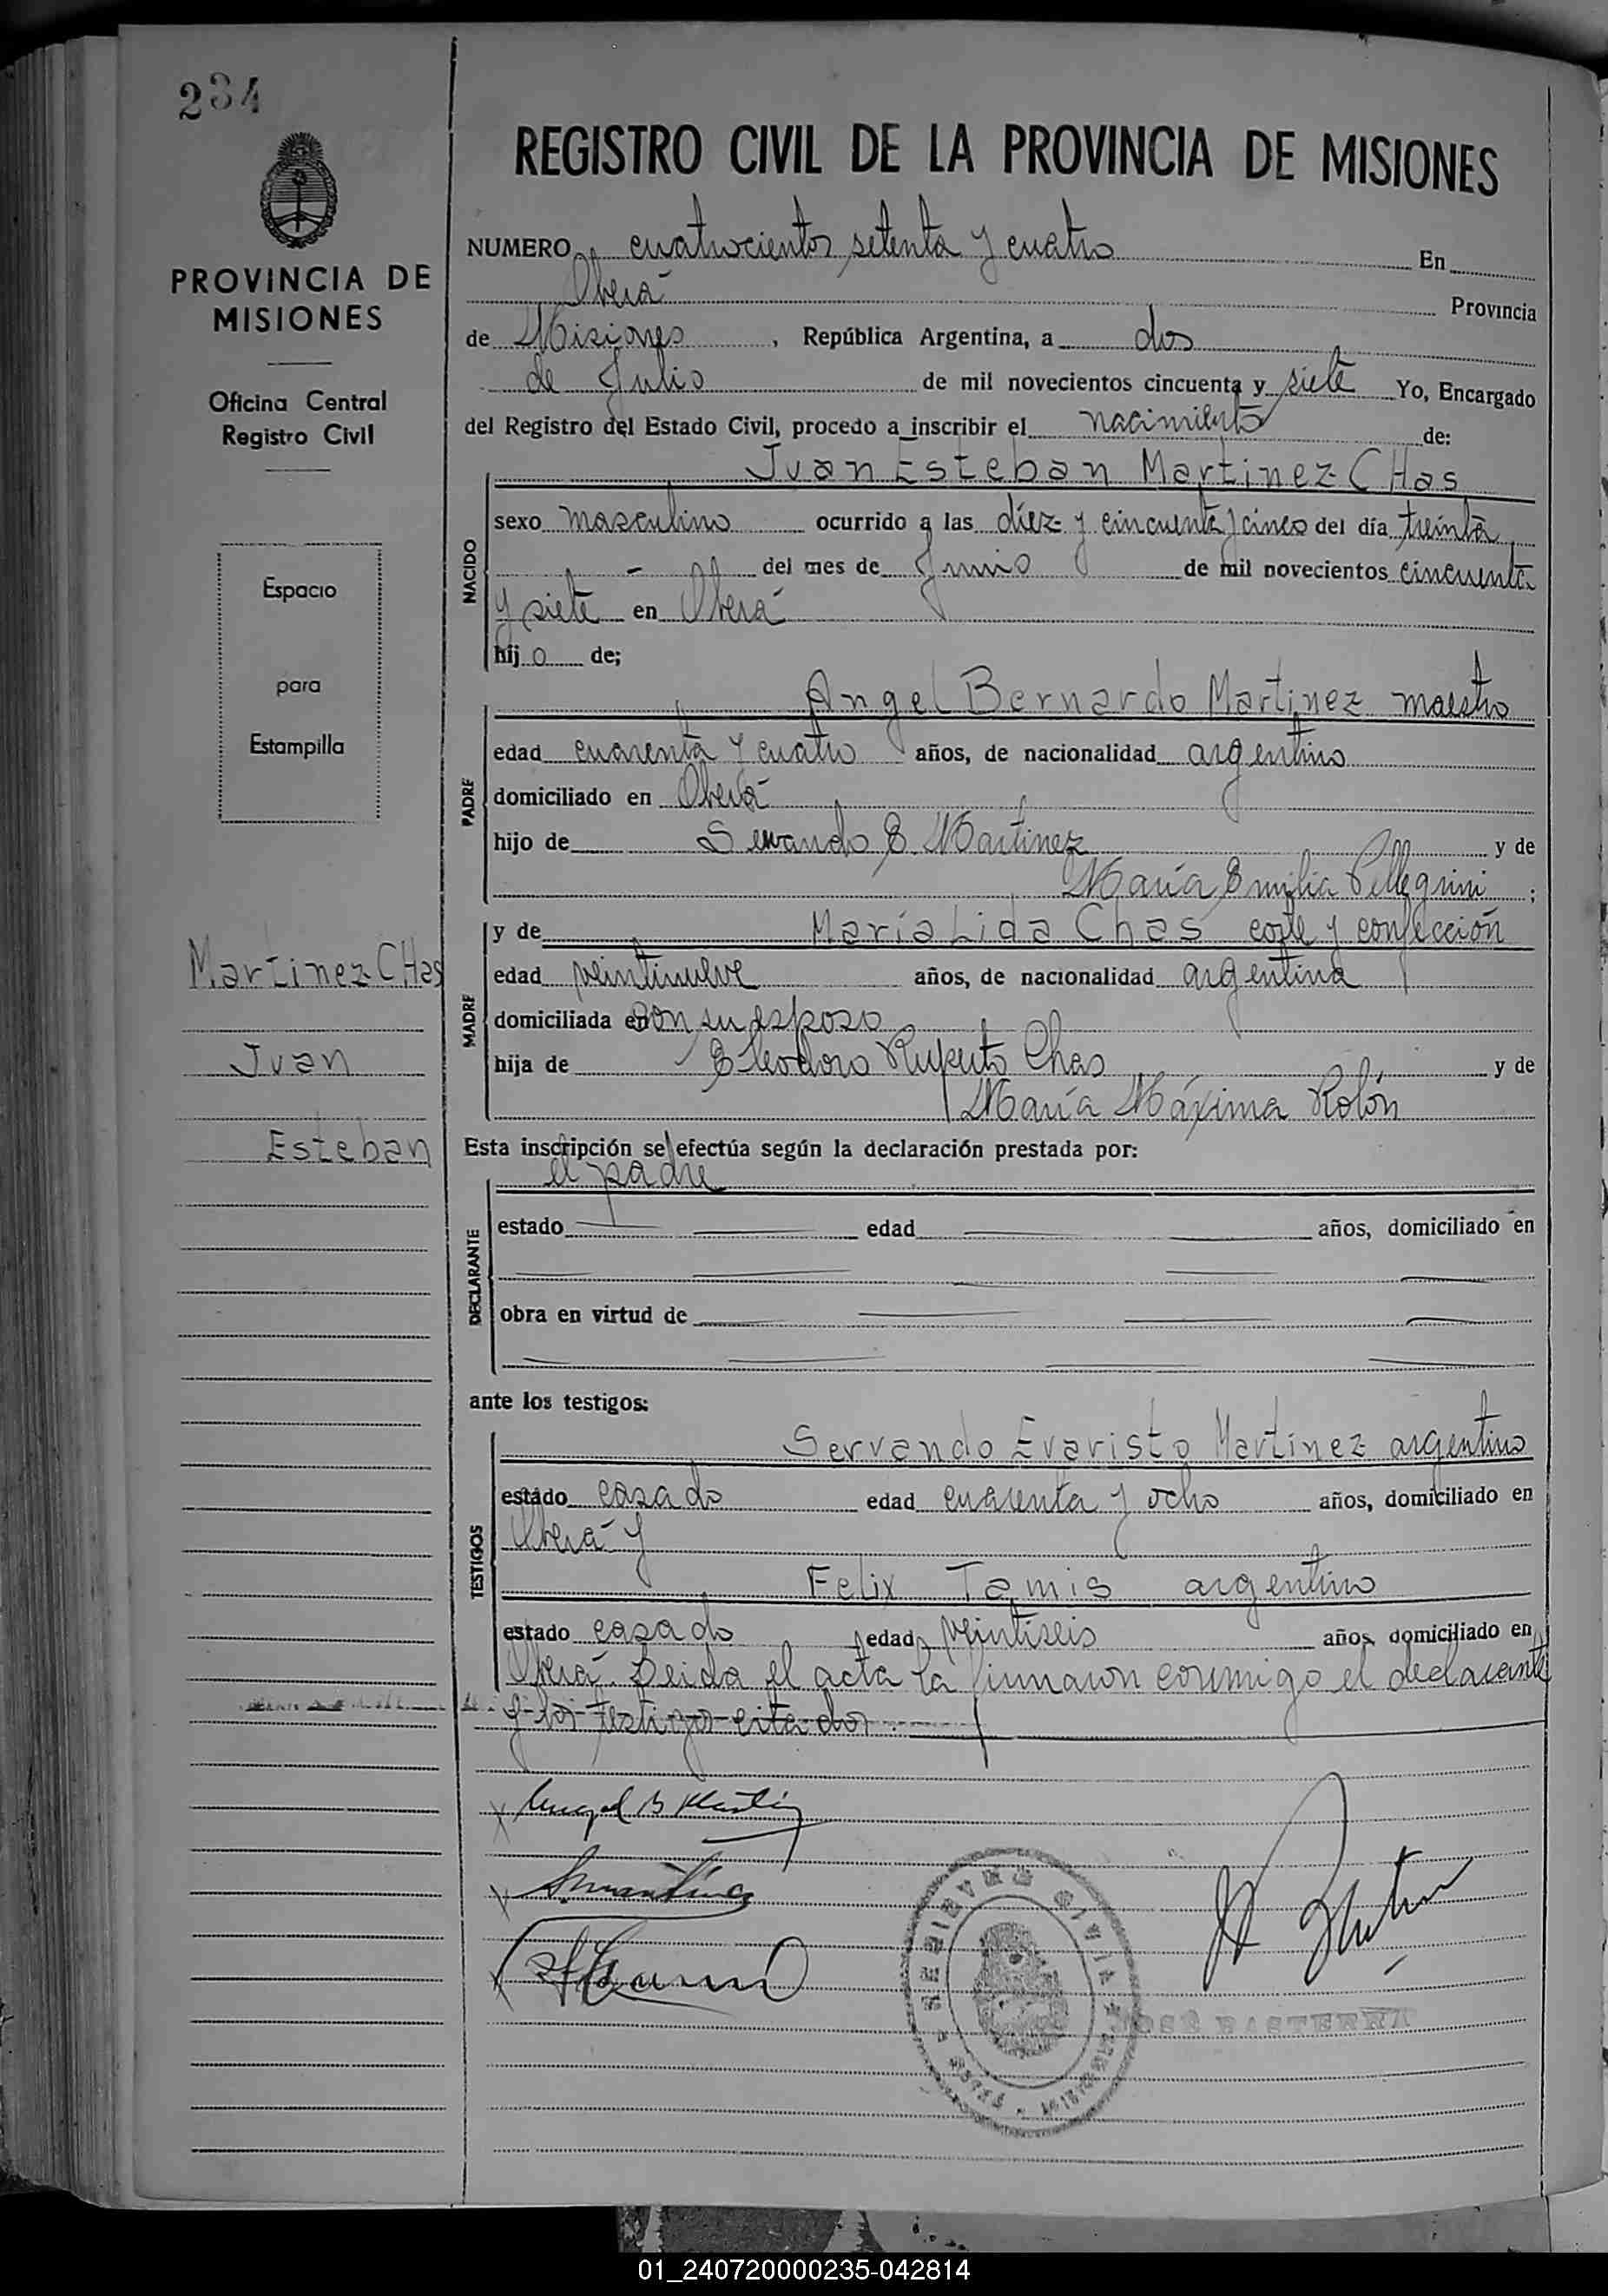 234
REGISTRO CIVIL DE LA PROVINCIA DE MISIONES
PROVINCIA DE
MISIONES
Oficina Central
Registro Civil
Espacio
para
Estampilla
Martinez CHas
Juan
Esteban
NUMERO cuatrocientos setenta y cuatro En
Oberá Provincia
de Misiones, República Argentina, a dos
de Julio de mil novecientos cincuenta y siete Yo, Encargado
del Registro del Estado Civil, procedo a inscribir el nacimiento de:
Juan Esteban Martinez CHas
NACIDO
sexo masculino ocurrido a las diez y cincuenta y cinco del día treinta
- del mes de Junio de mil novecientos cincuenta
y siete en Oberá
hijo de;
Angel Bernardo Martinez maestro
PADRE
edad cuarenta y cuatro años, de nacionalidad argentino
domiciliado en Oberá
hijo de Servando E. Martinez y de
María Emilia Pellegrini;
y de María Lida Chas corte y confección
MADRE
edad veintinueve años, de nacionalidad argentina
domiciliada en con su esposo
hija de Eleodoro Ruperto Chas y de
María Máxima Rolón
Esta inscripción se efectúa según la declaración prestada por:
el padre
DECLARANTE
estado edad años, domiciliado en
obra en virtud de
ante los testigos:
Servando Evaristo Martinez argentino
TESTIGOS
estado casado edad cuarenta y ocho años, domiciliado en
Oberá y
Felix Tamis argentino
estado casado edad veintiseis años domiciliado en
Oberá. Leida el acta la firmaron conmigo el declarante
y los testigos citados.
Angel B Martinez
REGISTRO CIVIL
JOSÉ BASTERRA
01_240720000235-042814